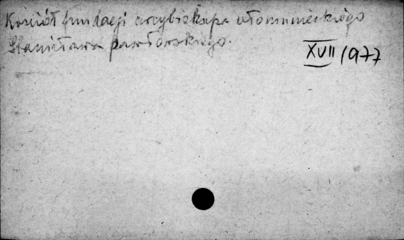 Kościół fundacji arcybiskupa ołomunieckiego
Stanisława Pawłowskiego.
XVII /977